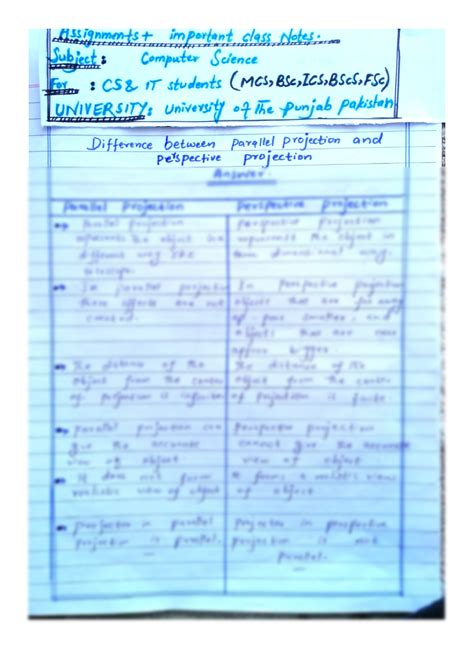 Assignments + important class Notes.
Subject : Computer Science
For : CS & IT students (MCS, BSc, ICS, BSCS, FSc)
UNIVERSITY: University of The Punjab Pakistan
Difference between Parallel projection and
perspective projection
Answer.
Parallel Projection Perspective projection
Parallel projection
represents the object in a
different way like
telescope.
In parallel projection
these effects are not
created.
The distance of the
object from the center
of projection is infinite
Parallel projection can
give the accurate
view of object.
It does not form
realistic view of object
projector in parallel
projection is parallel.
perspective projection
represent the object in
three dimensional way.
In Perspective projection
objects that are far away
smaller and
objects that are near
bigger.
The distance of the
object from the center
of projection is finite
Perspective projection
cannot give the accurate
view of object
It forms a realistic view
of object
Projector in perspective
projection is not
parallel.